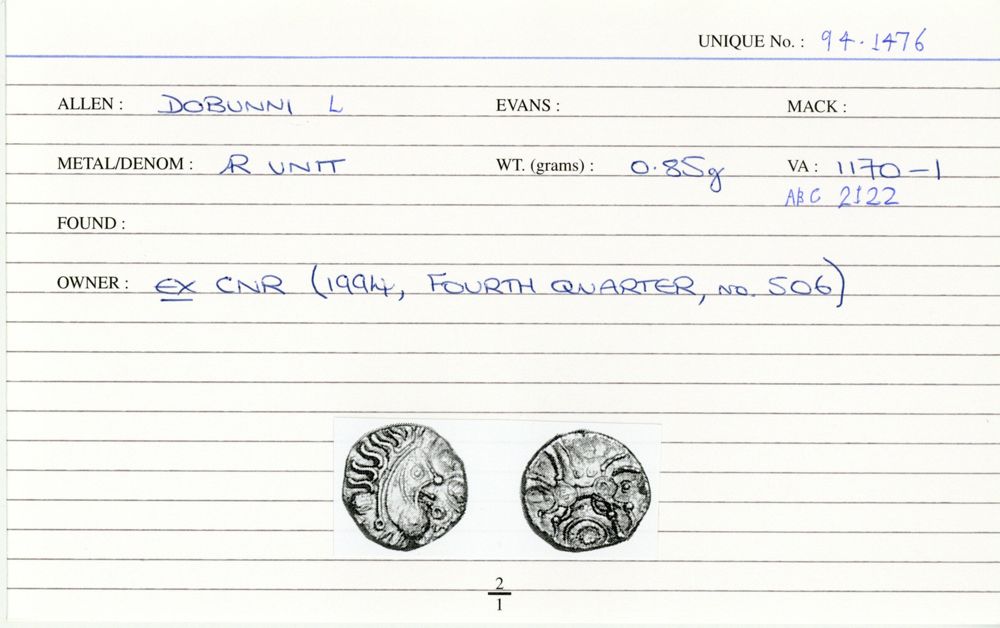 UNIQUE No. : 94.1476
ALLEN : DOBUNNI L EVANS : MACK :
METAL/DENOM : AR UNIT WT. (grams) : 0.85g VA : 1170-1
ABC 2122
FOUND :
OWNER : EX CNR (1994, FOURTH QUARTER, no. 506)
2
1